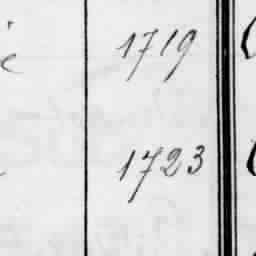 1719
1723